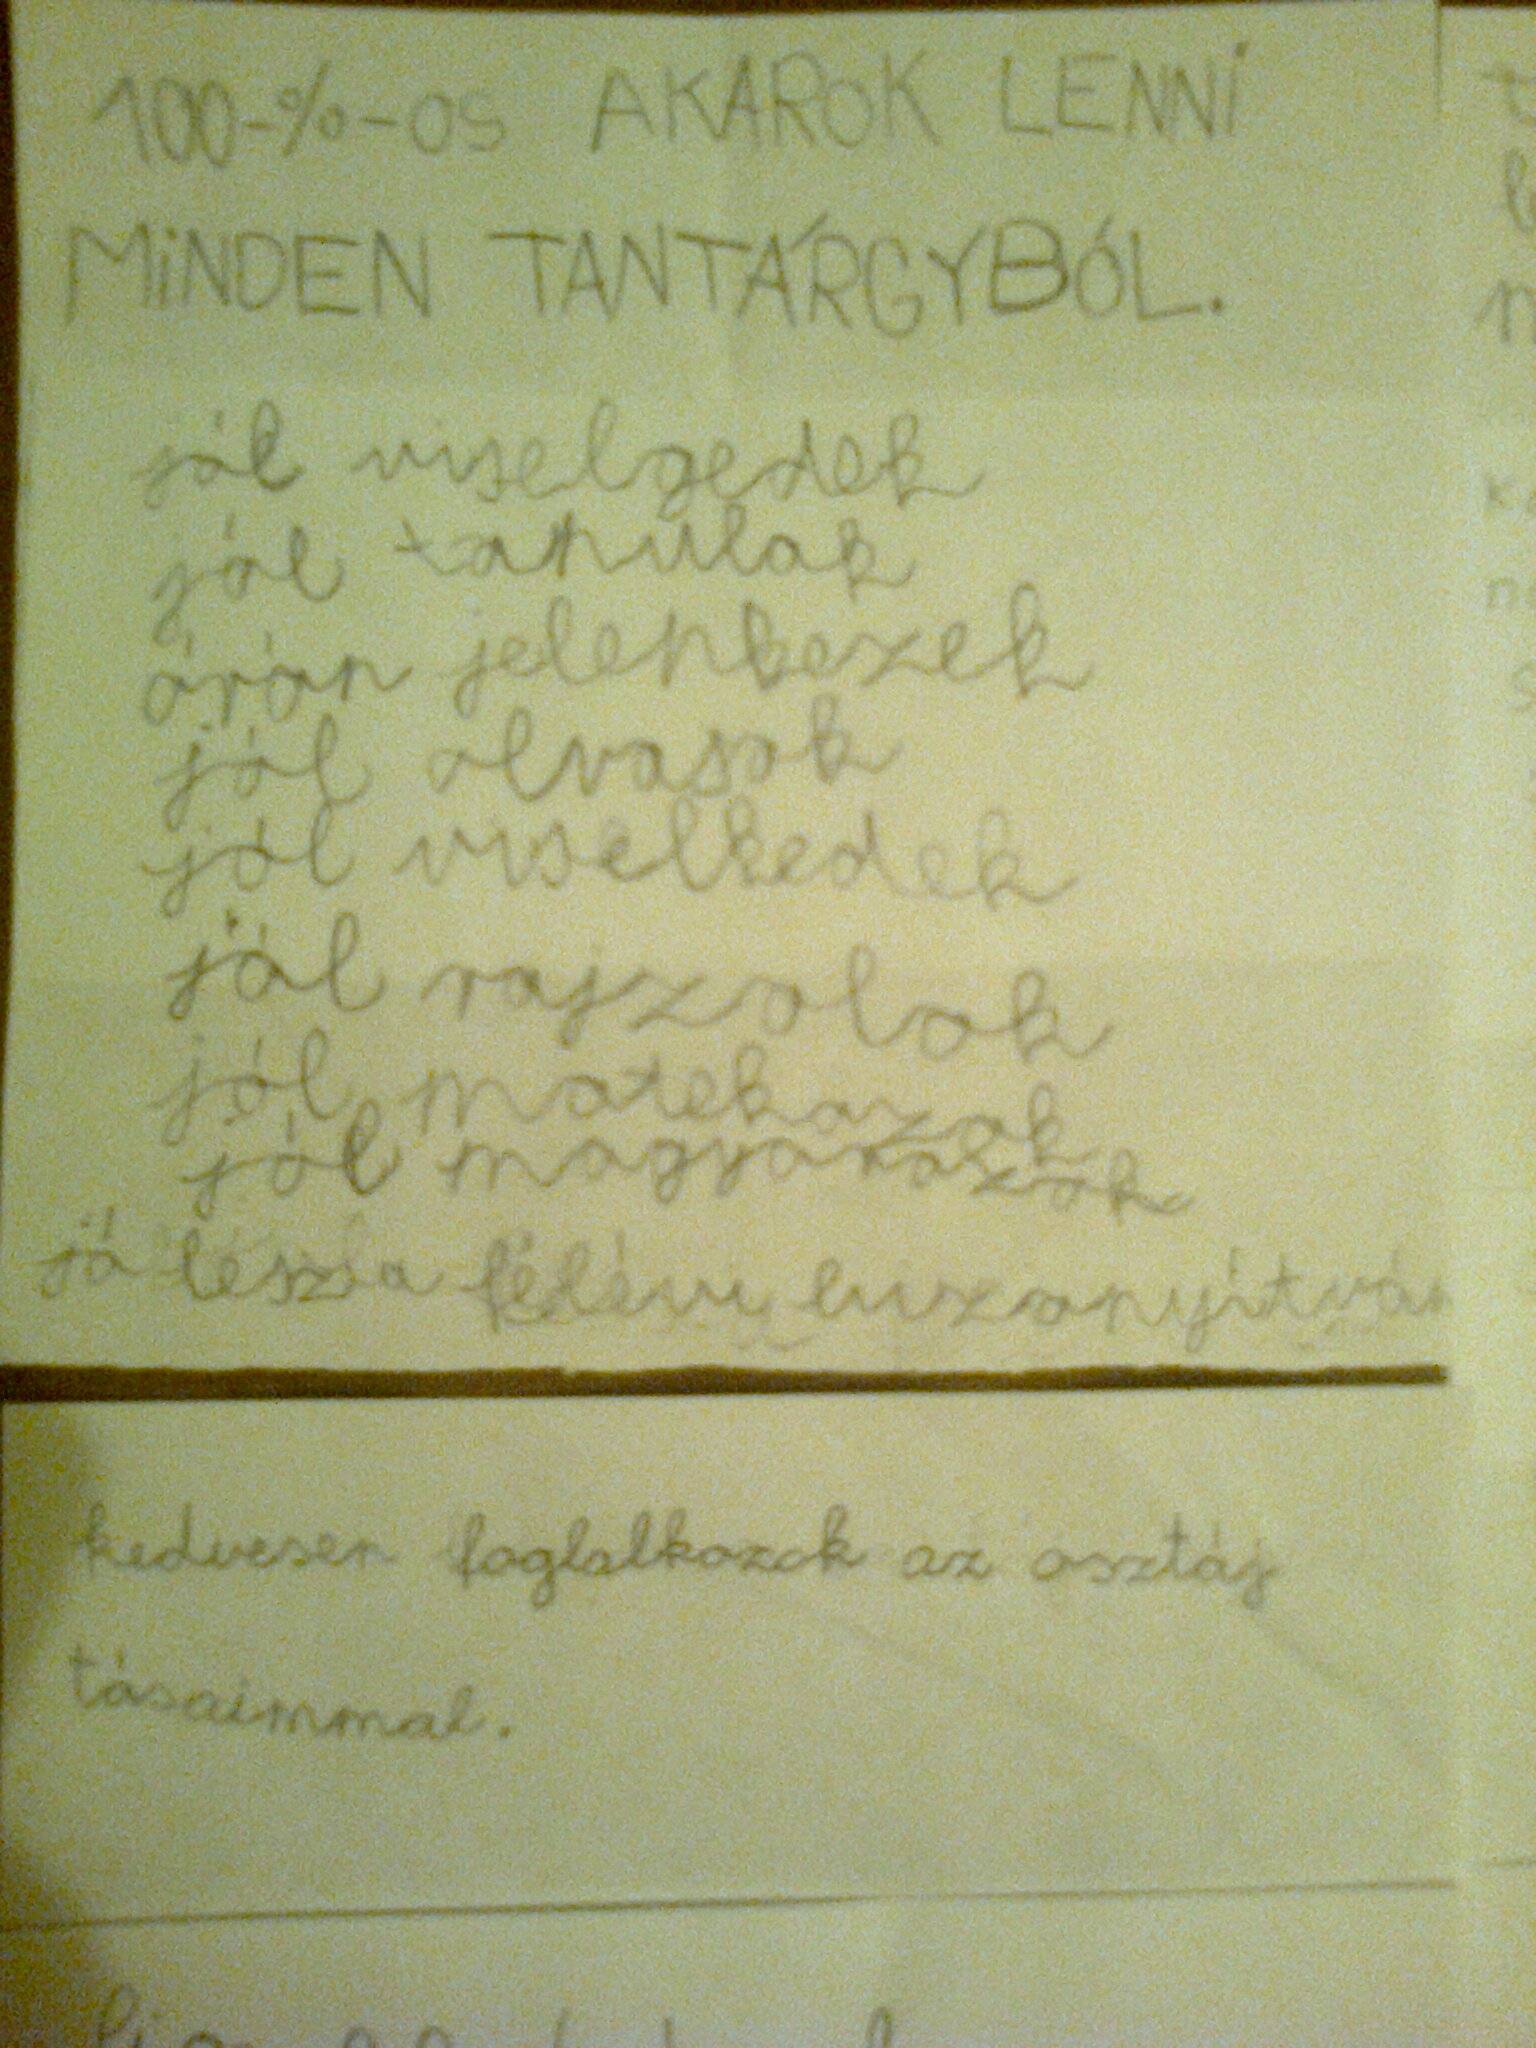 100-%-os AKAROK LENNi
MiNDEN TANTÁRGYBÓL.
jól viselgedek
jól tanulok
órán jelenkezek
jól olvasok
jól viselkedek
jól rajzolok
jól matekozok
jól magyarozok
jó lészla félévi
kedvesen foglalkozok az osztáj
tásaimmal.